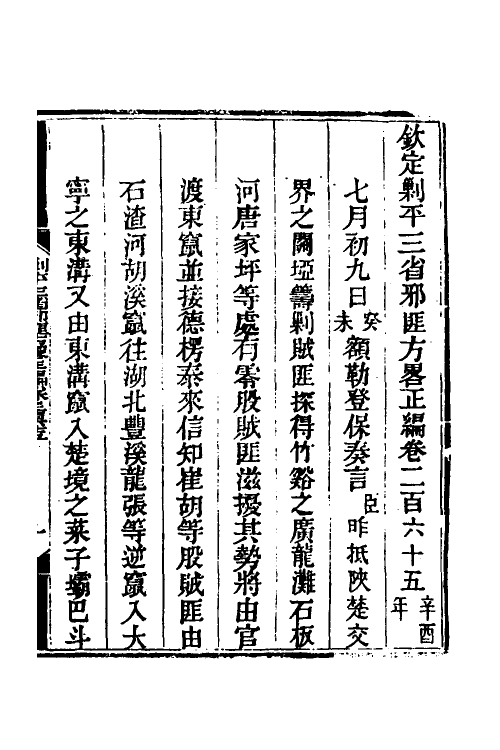 欽定剿平三省邪匪方畧正編卷二百六十五辛酉年
七月初九日癸未額勒登保奏言臣昨抵陝楚交
界之關埡籌剿賊匪探得竹谿之廣龍灘石板
河唐家坪等處有零股賊匪滋擾其勢將由官
渡東竄並接德楞泰來信知崔胡等股賊匪由
石渣河胡溪竄往湖北豐溪龍張等逆竄入大
寕之東溝又由東溝竄入楚境之菉子壩巴斗